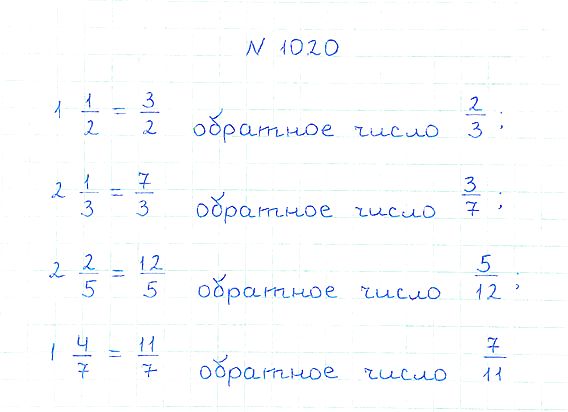 N 1020
1 1/2 = 3/2 обратное число 2/3;
2 1/3 = 7/3 обратное число 3/7;
2 2/5 = 12/5 обратное число 5/12;
1 4/7 = 11/7 обратное число 7/11